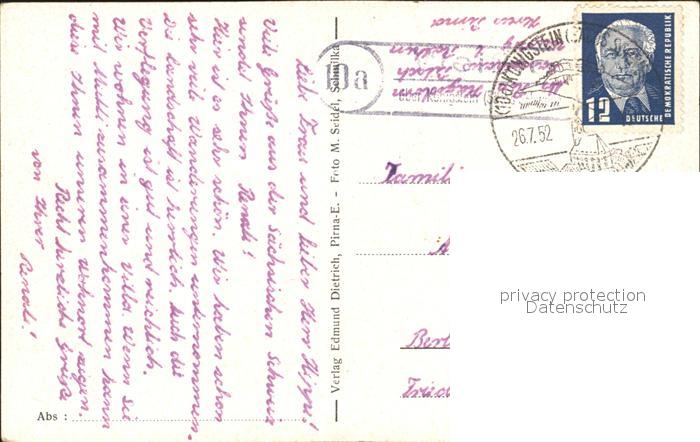 Liebe Frau und lieber Herr
Viele Grüße aus der Sächsischen Schweiz
sendet Ihnen Renate!
Hier ist es sehr schön. Wir haben schon
sehr viele Wanderungen unternommen.
Die Landschaft ist herrlich. Auch die
Verpflegung ist gut und reichlich.
Wir wohnen in einer Villa. Wenn Sie
mit Mutti zusammenkommen kann
diese Ihnen unseren Wohnort zeigen.
Recht herzliche Grüße
von Ihrer
Renate!
Abs :
Verlag Edmund Dietrich, Pirna-E. - Foto M. Seidel, Schmilka
10a
über Königstein
Kreis Pirna
KÖNIGSTEIN
26.7.52
12
DEUTSCHE
DEMOKRATISCHE REPUBLIK
Famili
Berl
Fried
privacy protection
Datenschutz